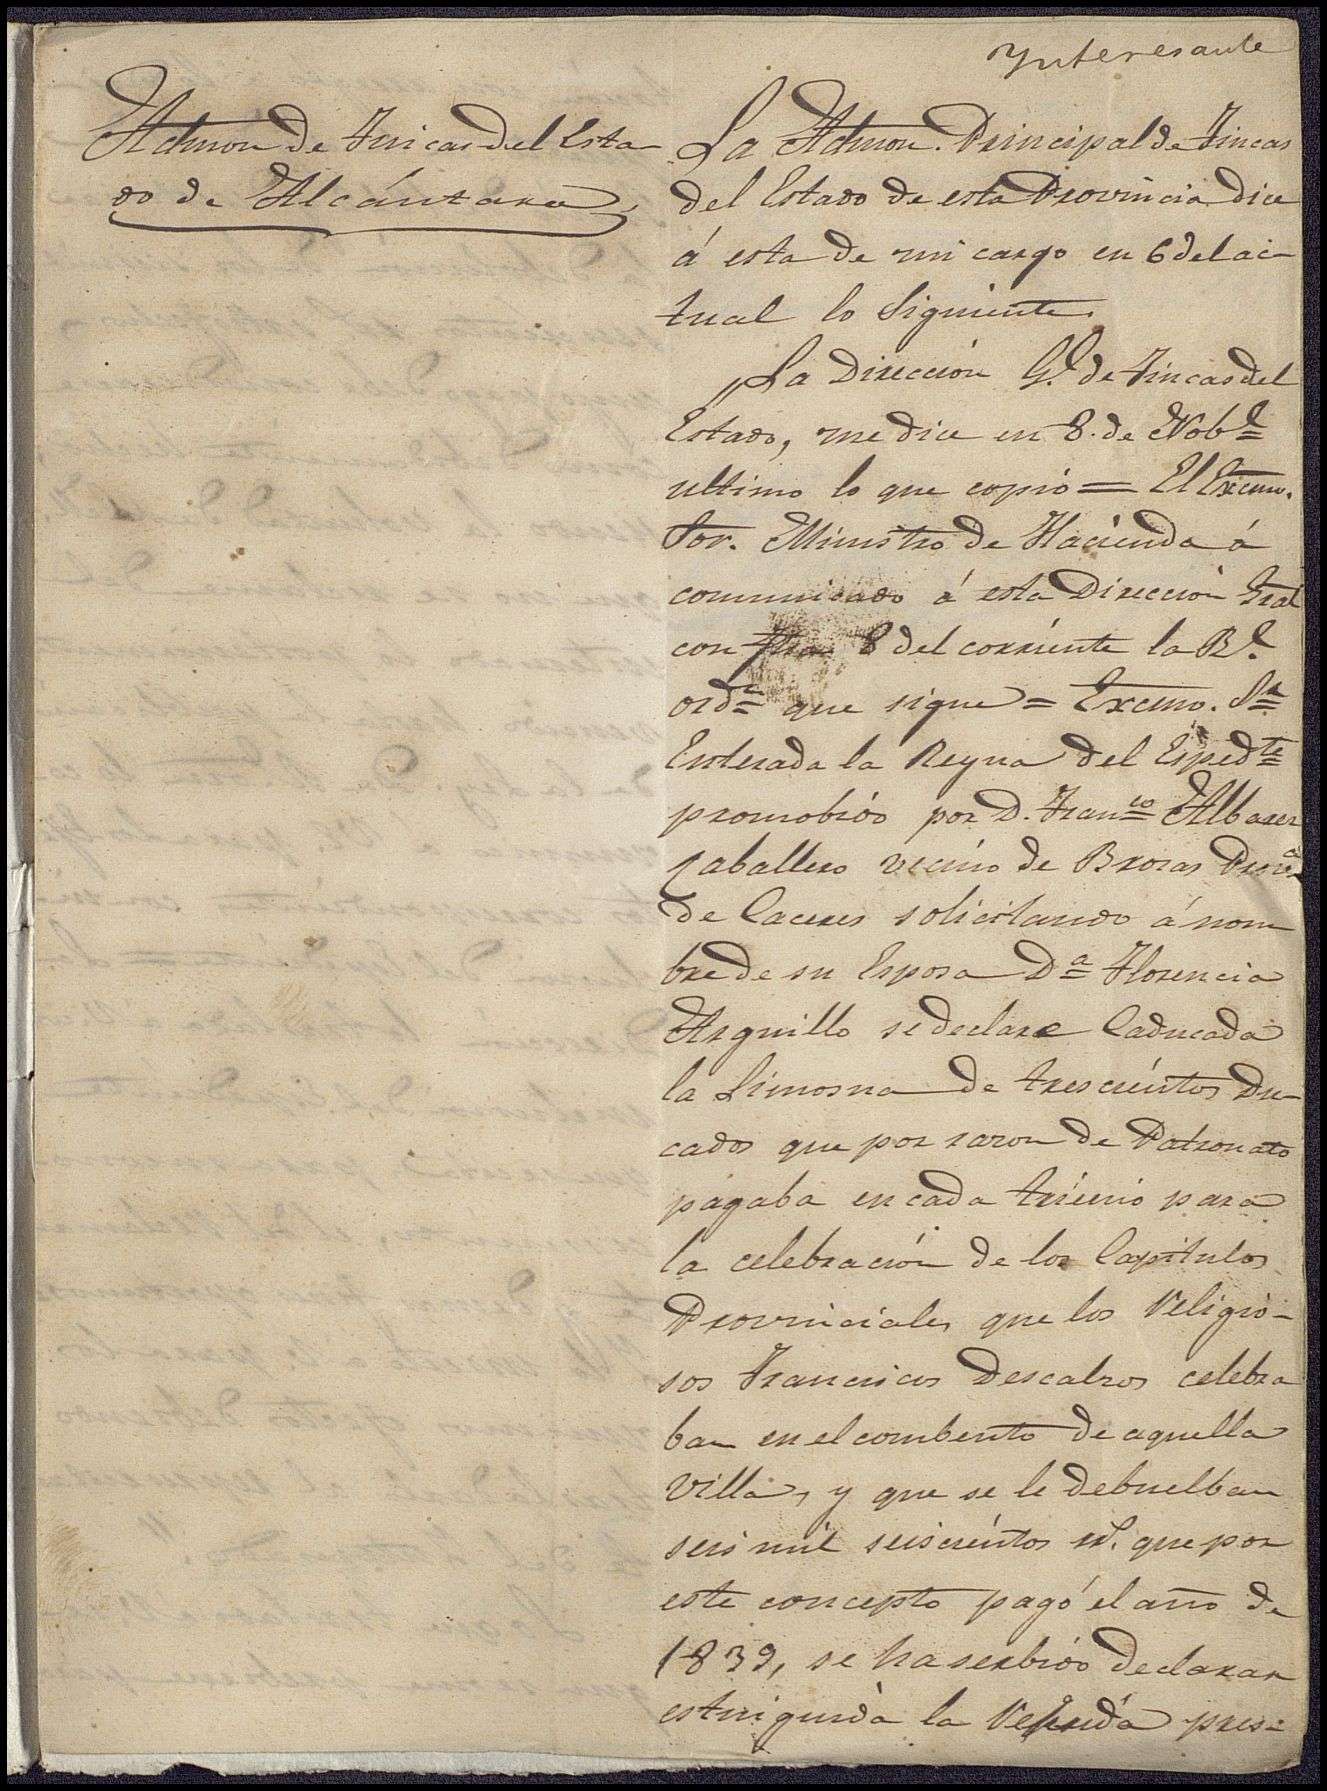 Ynteresante
Admon de Fincas del Esta-
do de Alcántara
La Admon. Principal de Fincas
del Estado de esta Provincia dice
á esta de mi cargo en 6 del ac-
tual lo siguiente.
"La Dirección Gl. de Fincas del
Estado, me dice en 8. de Nobe
ultimo lo que copio = El Excmo.
Sor. Ministro de Hacienda á
comunicado á esta Dirección Gral
con fha 8 del corriente la Rl.
ordn que sigue = Excmo. Sr
Enterada la Reyna del Espedte
promobido por D. Franco Albarez
Caballero vecino de Brozas Prova
de Caceres solicitando á nom
bre de su Esposa Da Florencia
Arguillo se declare Caducada
la Limosna de trescientos Du-
cados que por razon de Patronato
pagaba en cada trienio para
la celebración de los Capitulos
Provinciales que los Religio-
sos Francisces Descalzos celebra
ban en el combento de aquella
Villa, y que se le debuelban
seis mil seiscientos rs. que por
este concepto pagó el año de
1839, se ha serbido declarar
estinguida la referida pres-